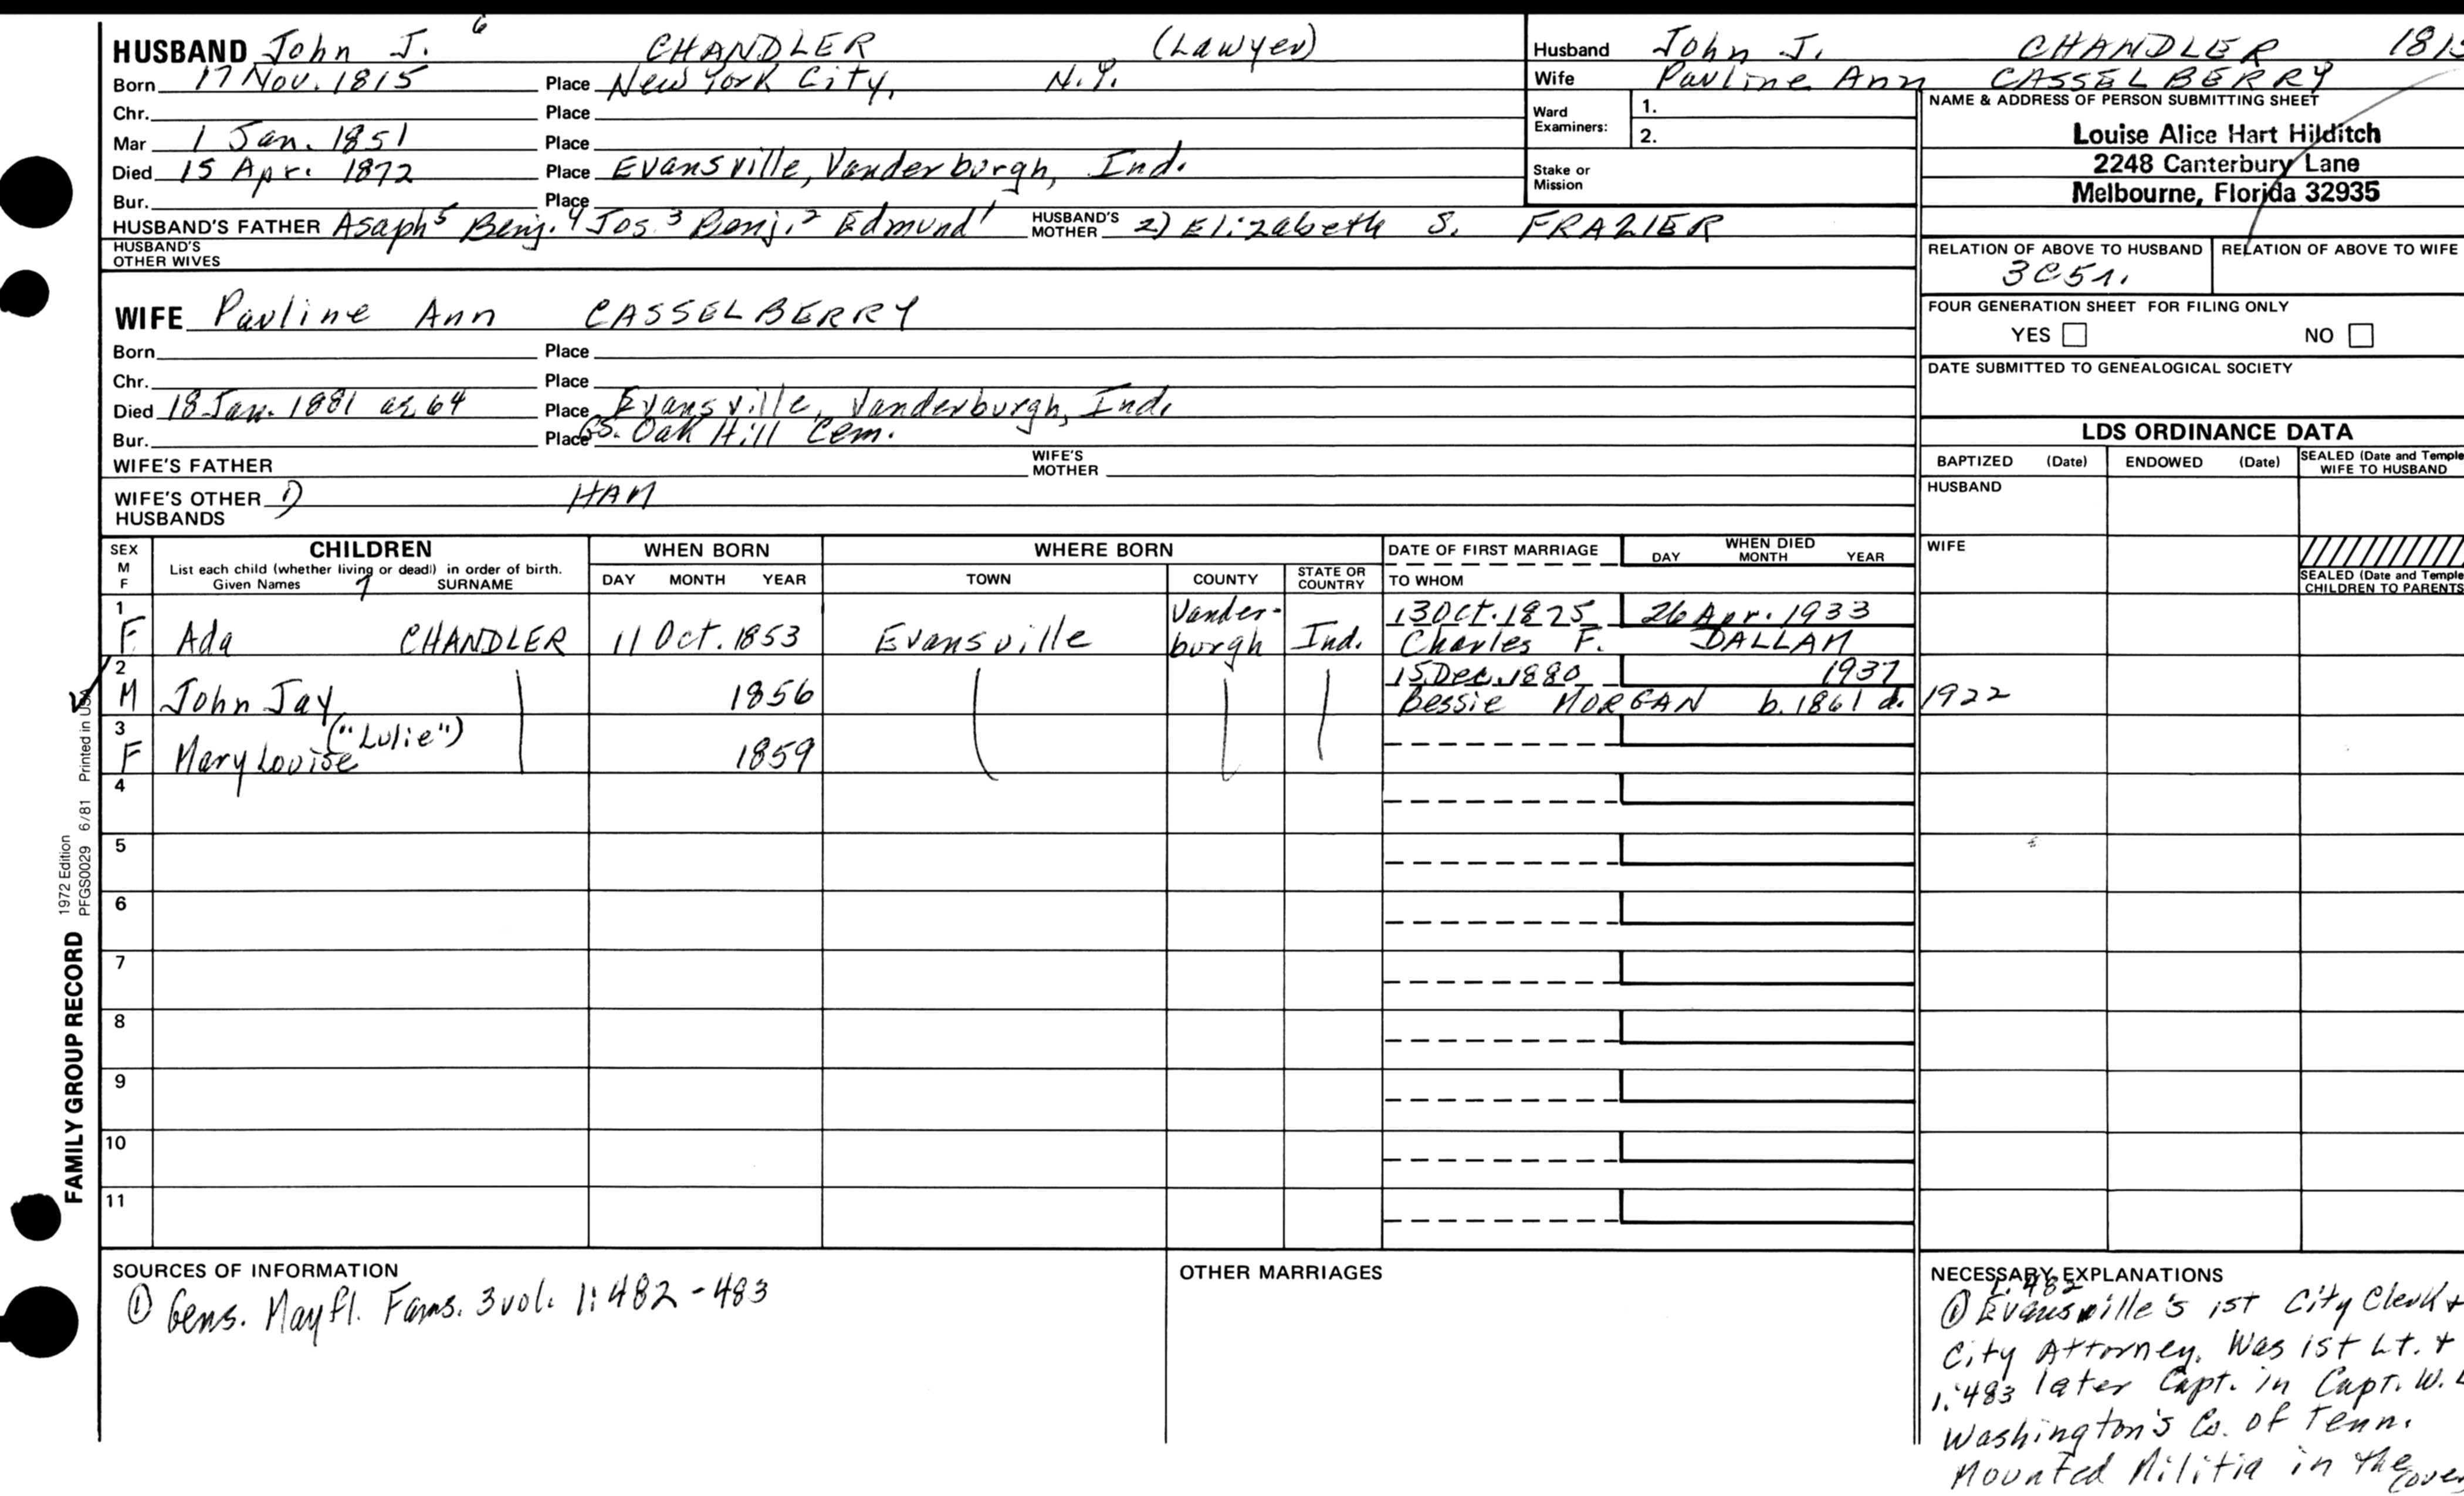 HUSBAND John J. 6 CHANDLER (Lawyer)
Born 17 Nov. 1815 Place New York City, N.Y.
Chr. Place
Mar 1 Jan. 1851 Place
Died 15 Apr. 1872 Place Evansville, Vanderburgh, Ind.
Bur. Place
HUSBAND'S FATHER Asaph5 Benj.4 Jos.3 Benj.2 Edmund1 HUSBAND'S MOTHER 2) Elizabeth S. FRAZIER
HUSBAND'S OTHER WIVES
WIFE Pauline Ann CASSELBERRY
Born Place
Chr. Place
Died 18 Jan. 1881 ae 64 Place Evansville, Vanderburgh, Ind.
Bur. Place GS. Oak Hill Cem.
WIFE'S FATHER WIFE'S MOTHER
WIFE'S OTHER HUSBANDS 1) HAM
Husband John J. CHANDLER 181
Wife Pauline Ann CASSELBERRY
Ward Examiners: 1.
2.
Stake or Mission
NAME & ADDRESS OF PERSON SUBMITTING SHEET
Louise Alice Hart Hilditch
2248 Canterbury Lane
Melbourne, Florida 32935
RELATION OF ABOVE TO HUSBAND RELATION OF ABOVE TO WIFE
3C51.
FOUR GENERATION SHEET FOR FILING ONLY
YES NO
DATE SUBMITTED TO GENEALOGICAL SOCIETY
LDS ORDINANCE DATA
BAPTIZED (Date) ENDOWED (Date) SEALED (Date and Temple
WIFE TO HUSBAND
HUSBAND
WIFE
SEALED (Date and Temple
CHILDREN TO PARENTS
SEX M F CHILDREN WHEN BORN WHERE BORN DATE OF FIRST MARRIAGE WHEN DIED
List each child (whether living or dead) in order of birth.
Given Names 7 SURNAME DAY MONTH YEAR TOWN COUNTY STATE OR COUNTRY TO WHOM DAY MONTH YEAR
1 Vander- 13 Oct. 1825 26 Apr. 1933
F Ada CHANDLER 11 Oct. 1853 Evansville burgh Ind. Charles F. DALLAM
2 15 Dec. 1880 1937
M John Jay 1856 Bessie MORGAN b. 1861 d. 1922
3 ("Lulie")
F Mary Louise 1859
4
5
6
7
8
9
10
11
FAMILY GROUP RECORD 1972 Edition
PFGS0029 6/81 Printed in USA
SOURCES OF INFORMATION
① Gens. Mayfl. Fams. 3 vol. 1:482-483
OTHER MARRIAGES
NECESSARY EXPLANATIONS
1:482
① Evansville's 1st City Clerk +
City Attorney. Was 1st Lt. +
1:483 later Capt. in Capt. W.
Washington's Co. of Tenn.
Mounted Militia in the